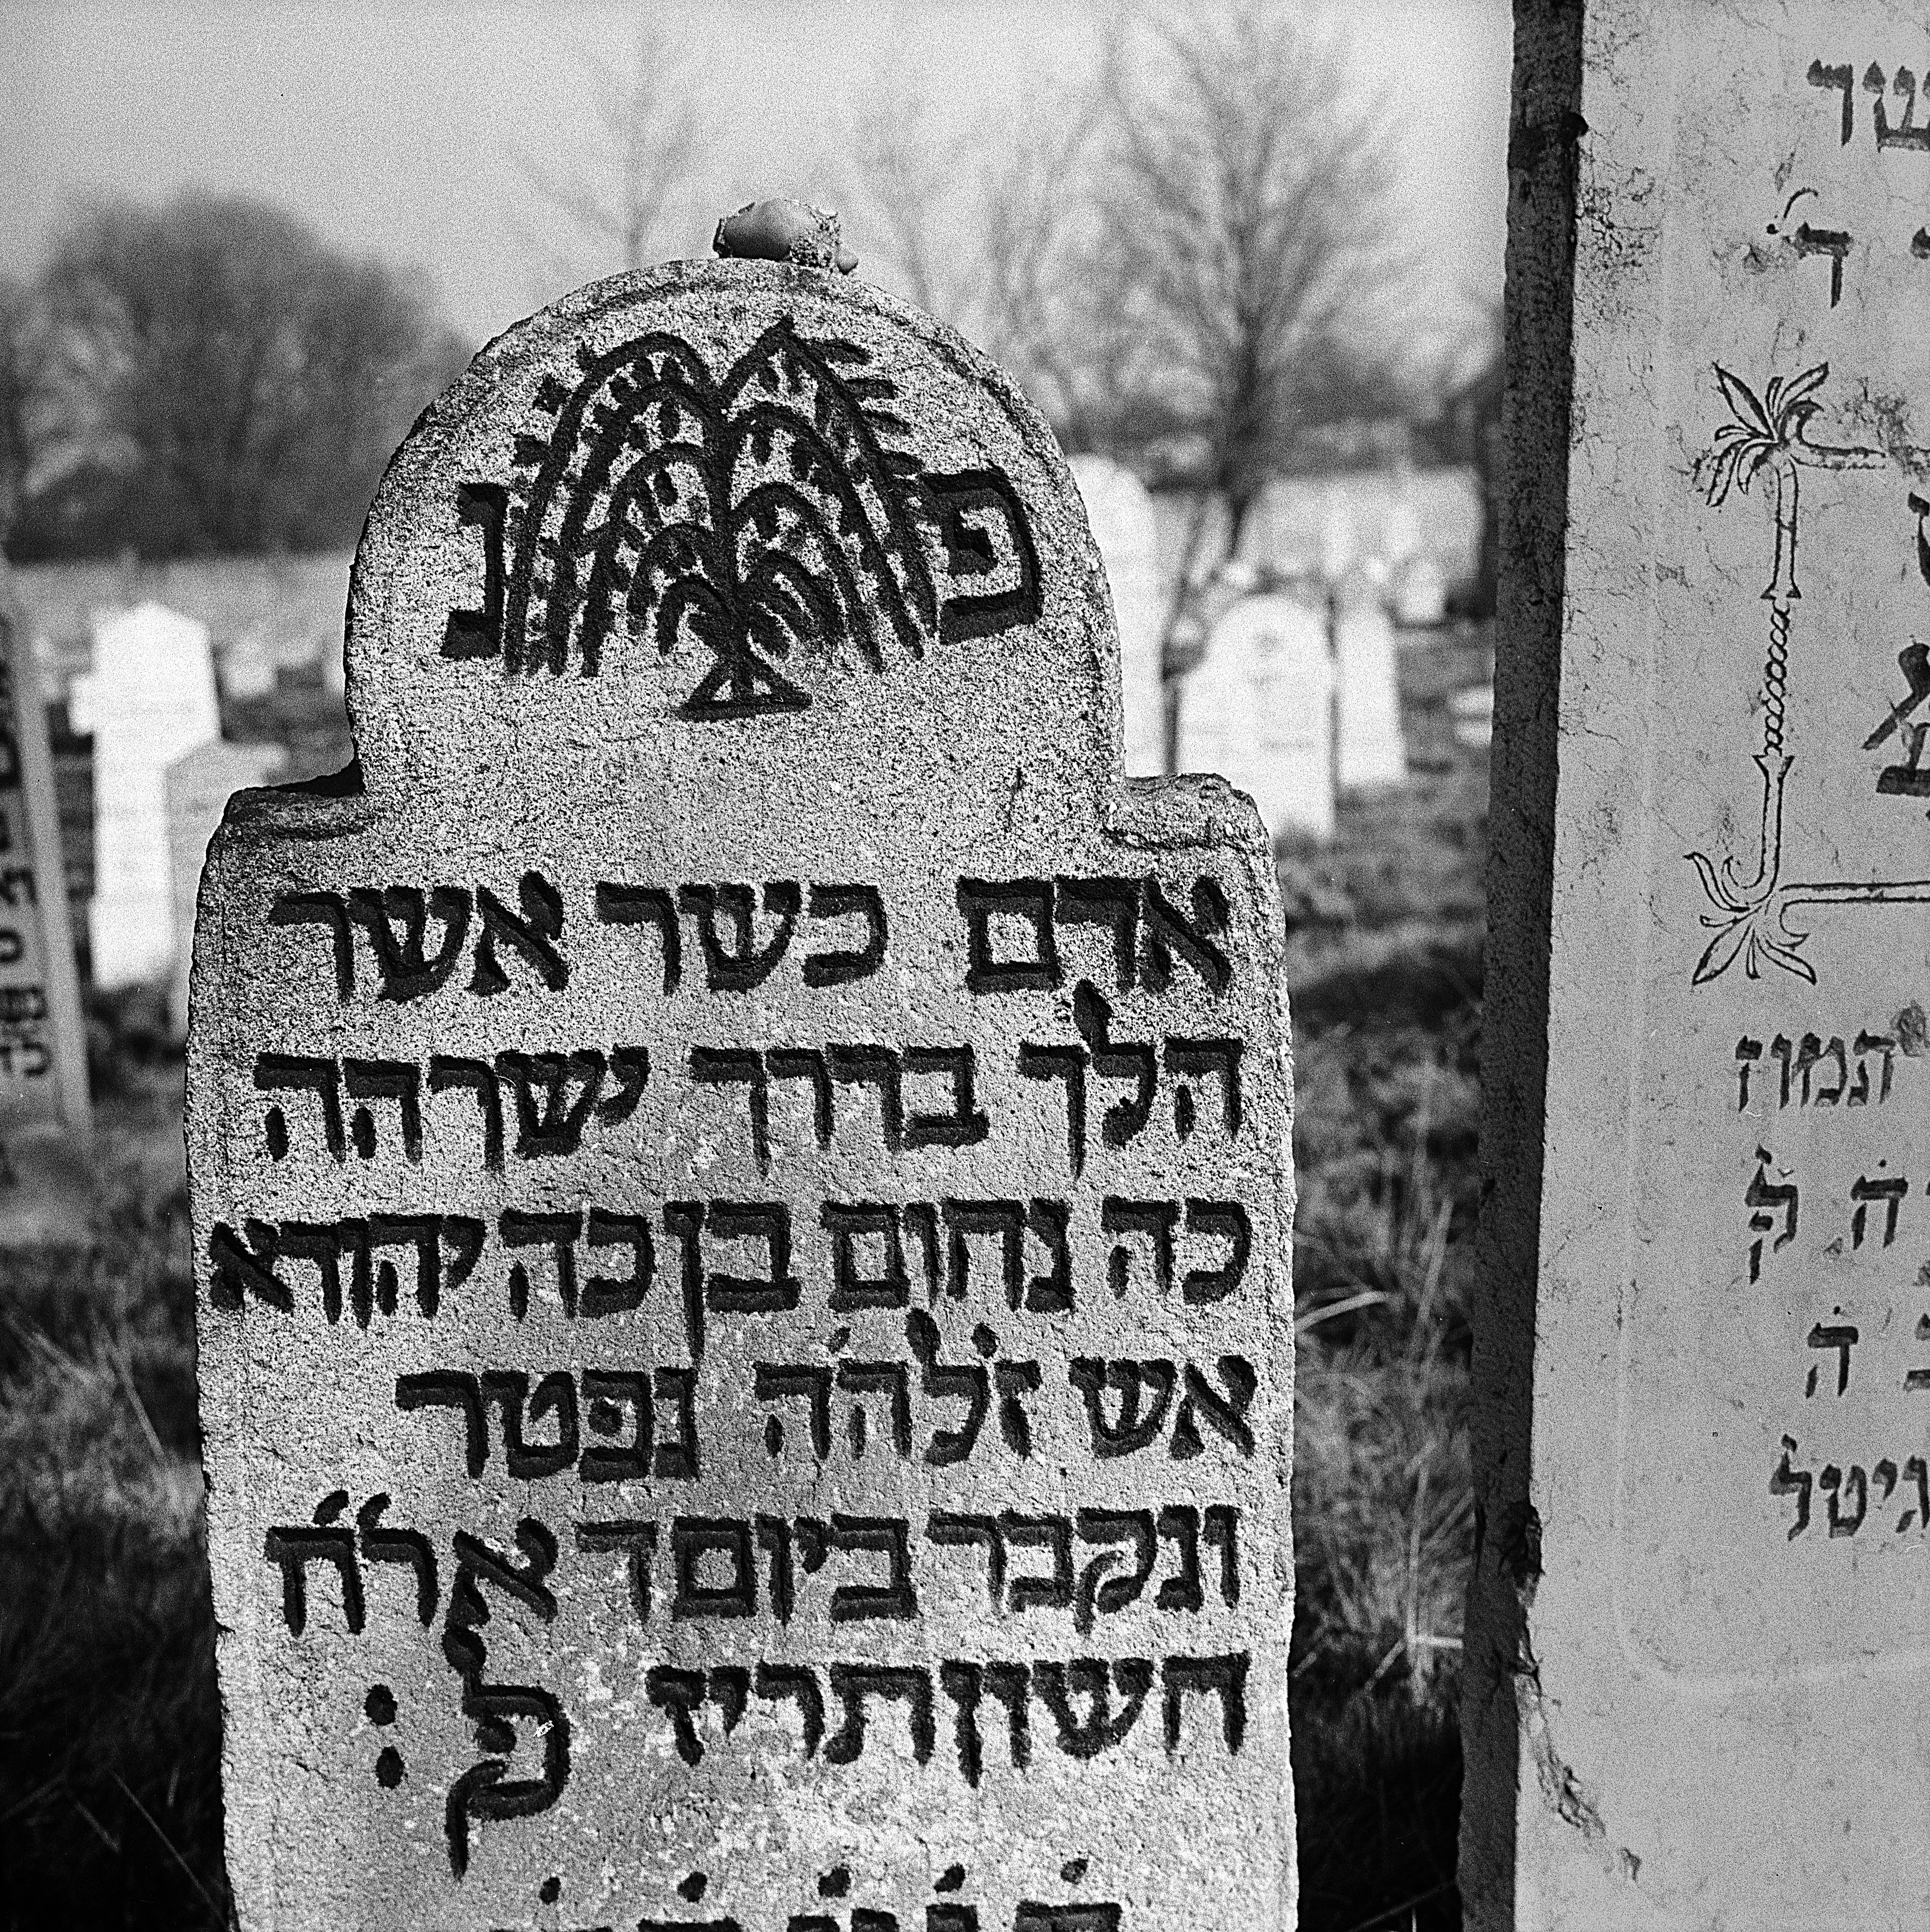 פ נ
אדם כשר אשר
הלך בדרך ישרהה
כה נחום בן כה יהודא
אש ז׳ל׳ה׳ה נפטר
ונקבר ביום ד א ר׳ח׳
חשון תריז לפ :
תמוז
לפ
גיטל